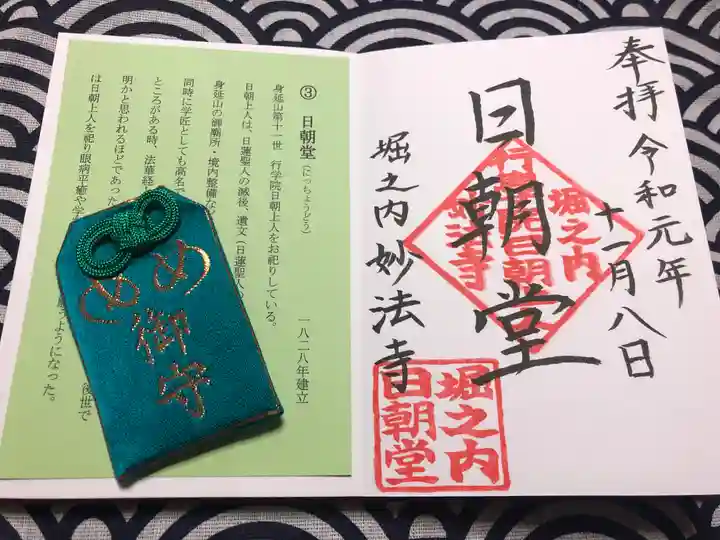 奉拝 令和元年
十一月八日
日朝堂
堀之内妙法寺
堀之内
妙法寺
堀之内
日朝堂
③ 日朝堂(にっちょうどう)
一八二八年建立
身延山第十一世 行学院日朝上人をお祀りしている。
日朝上人は、日蓮聖人の滅後、遺文(日蓮聖人の
身延山の御廟所・境内整備など
同時に学匠としても高名
ところがある時、法華経
明かと思われるほどであった
後世で
は日朝上人を祀り眼病平癒や学
うようになった。
め
め
御守